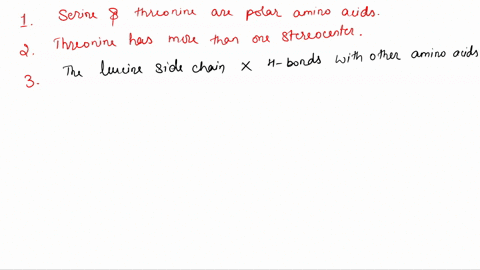 1. Serine & threonine are polar amino acids.
2. Threonine has more than one stereocenter.
3. The leucine side chain × H-bonds with other amino acids